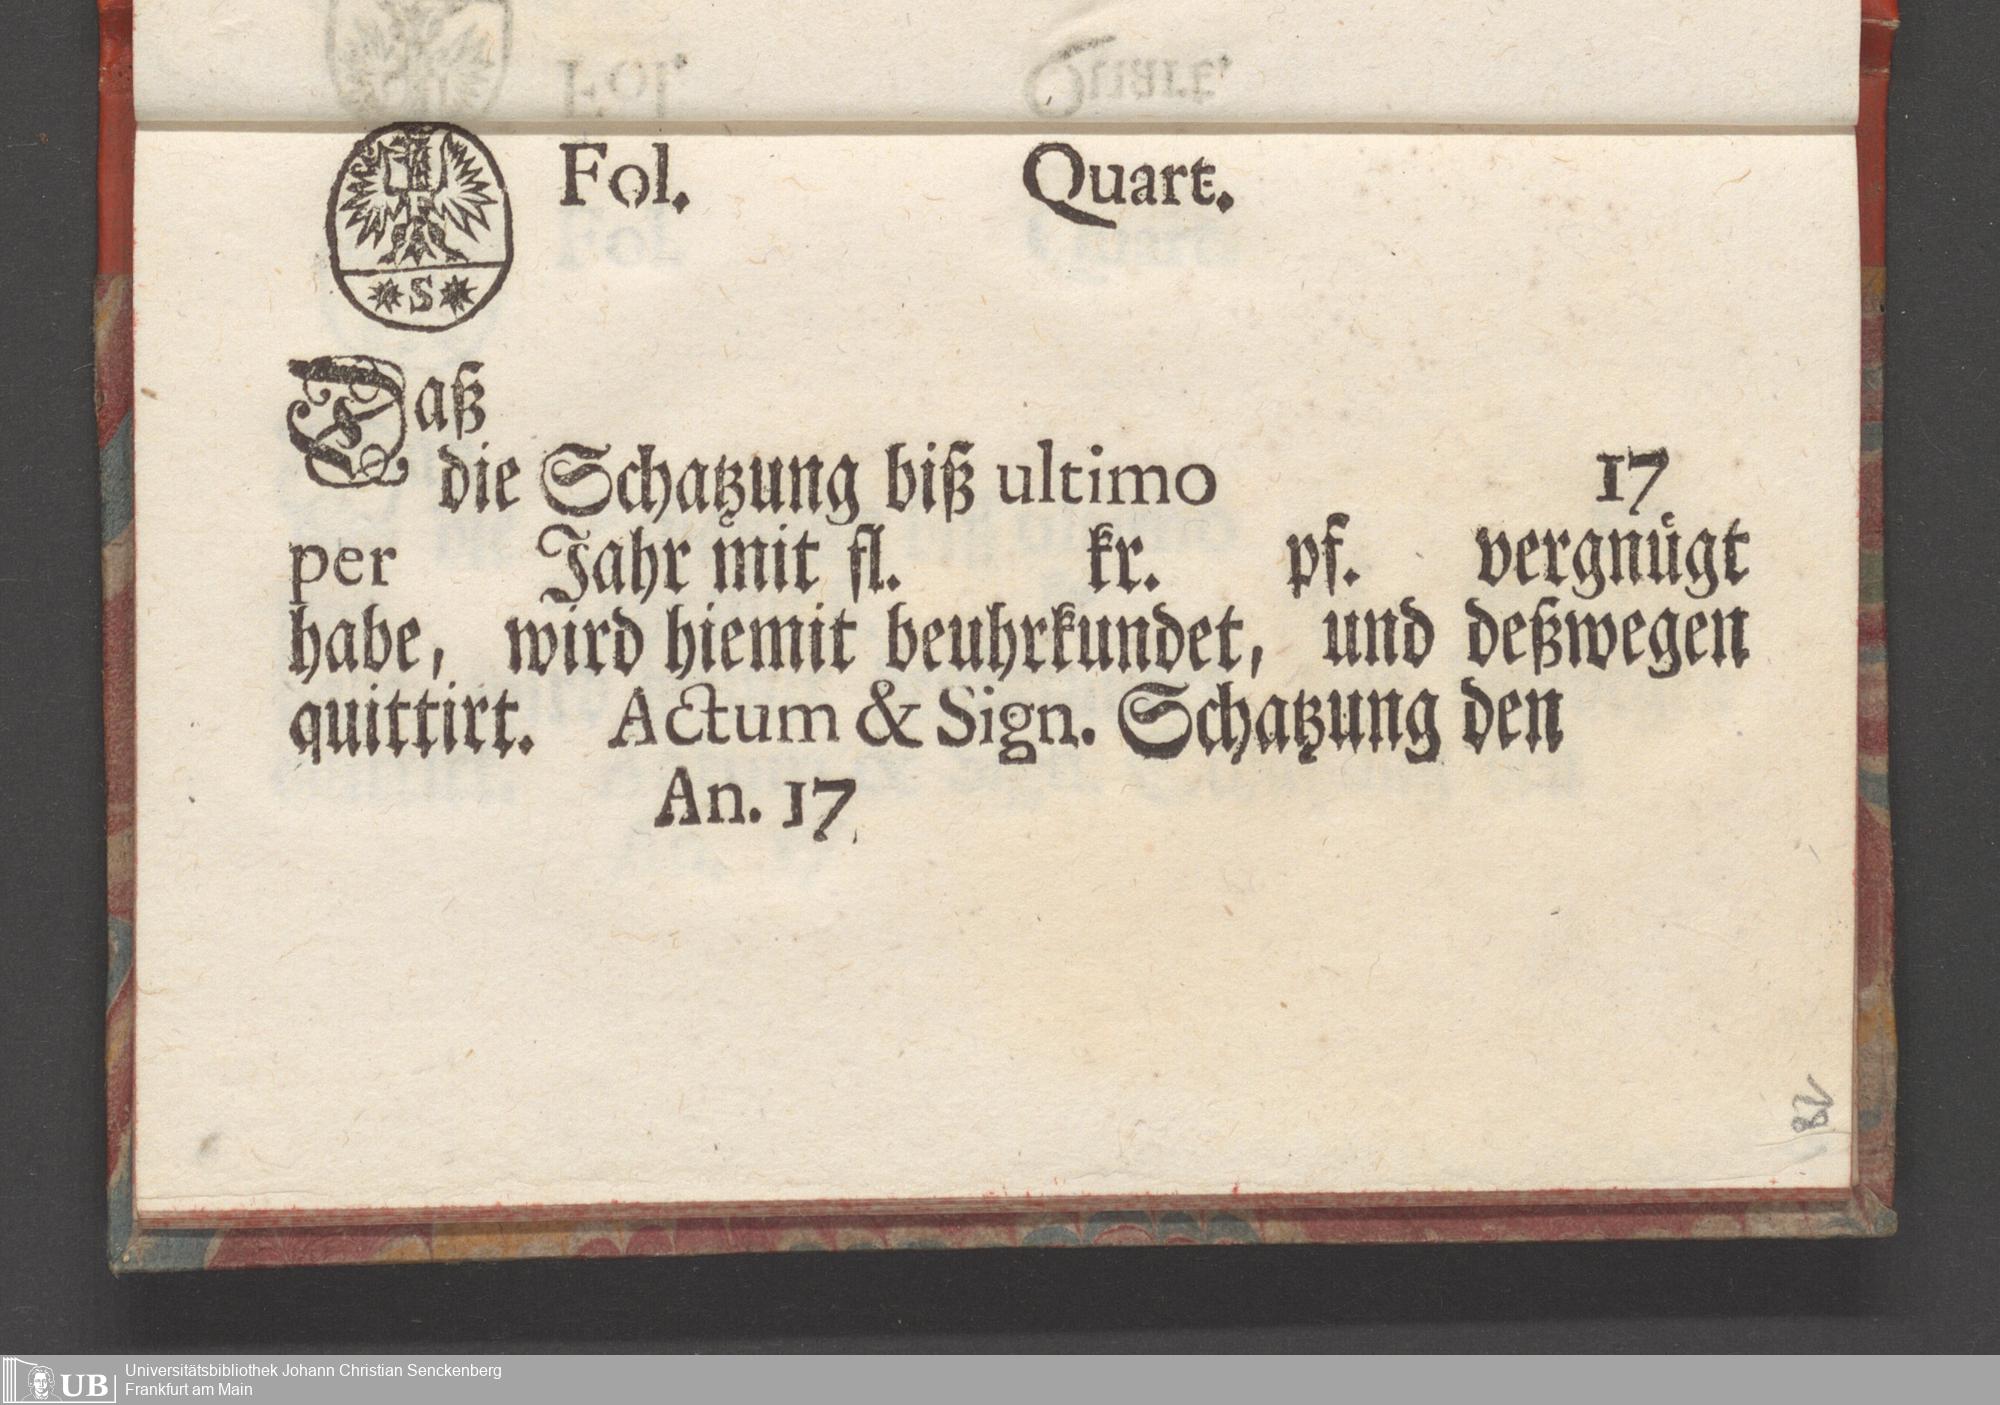 Fol. Quart.
S
Daß
die Schatzung biß ultimo 17
per Jahr mit fl. kr. pf. vergnůgt
habe, wird hiemit beuhrkundet, und deßwegen
quittirt. Actum & Sign. Schatzung den
An. 17
UB
Universitätsbibliothek Johann Christian Senckenberg
Frankfurt am Main